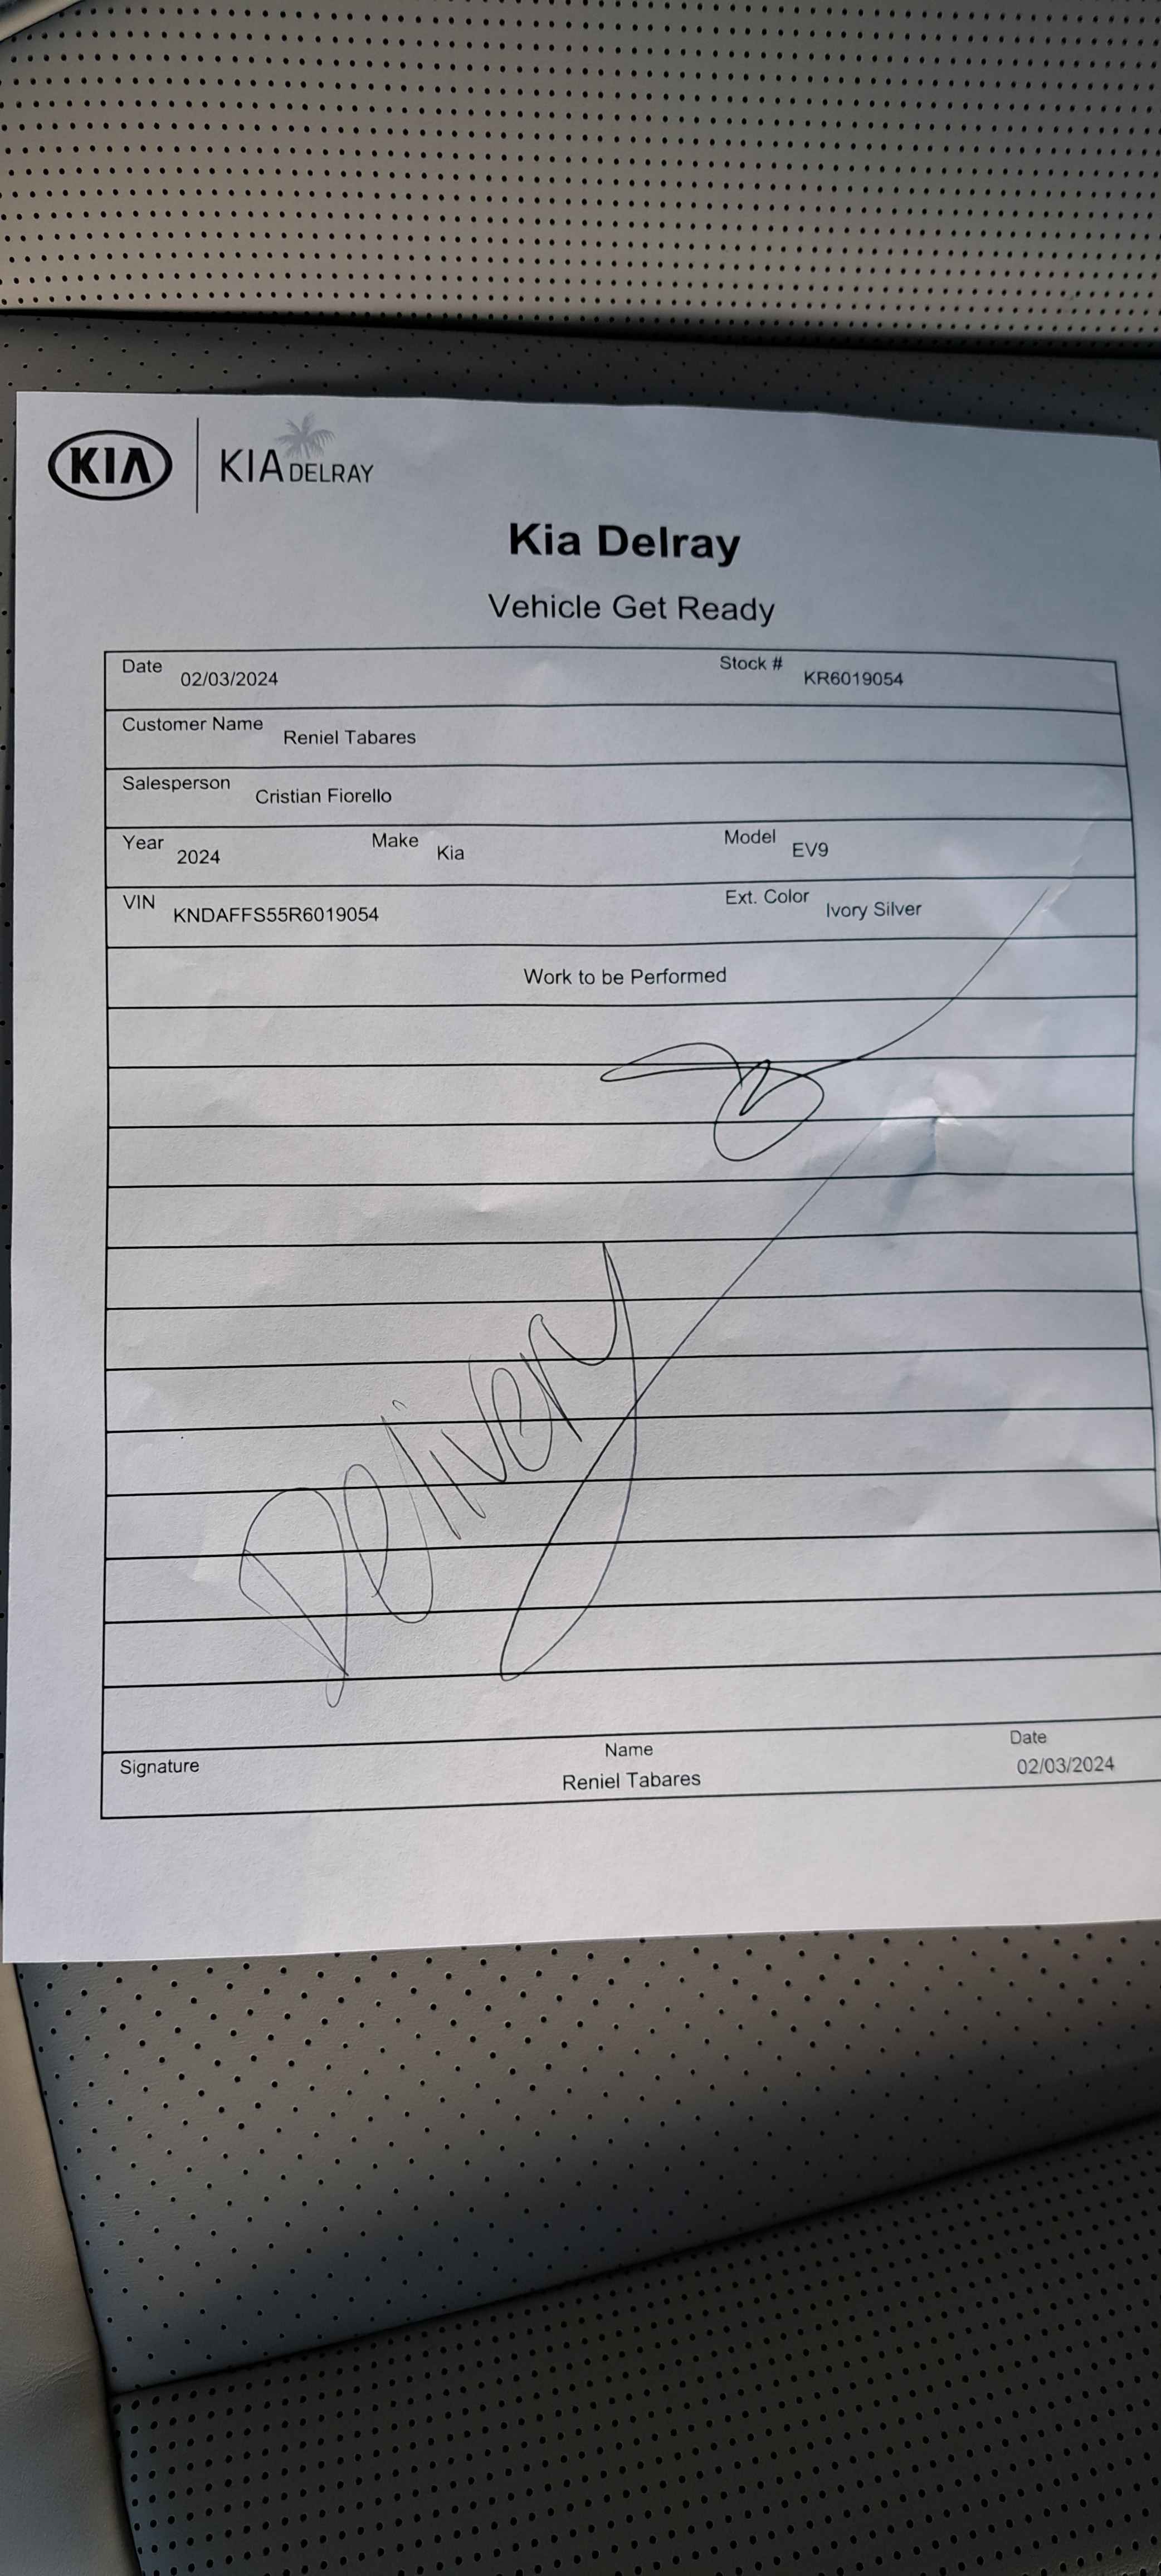 KIA KIA DELRAY
Kia Delray
Vehicle Get Ready
Date 02/03/2024 Stock # KR6019054
Customer Name Reniel Tabares
Salesperson Cristian Fiorello
Year 2024 Make Kia Model EV9
VIN KNDAFFS55R6019054 Ext. Color Ivory Silver
Work to be Performed
Delivery
Signature Name Date
Reniel Tabares 02/03/2024